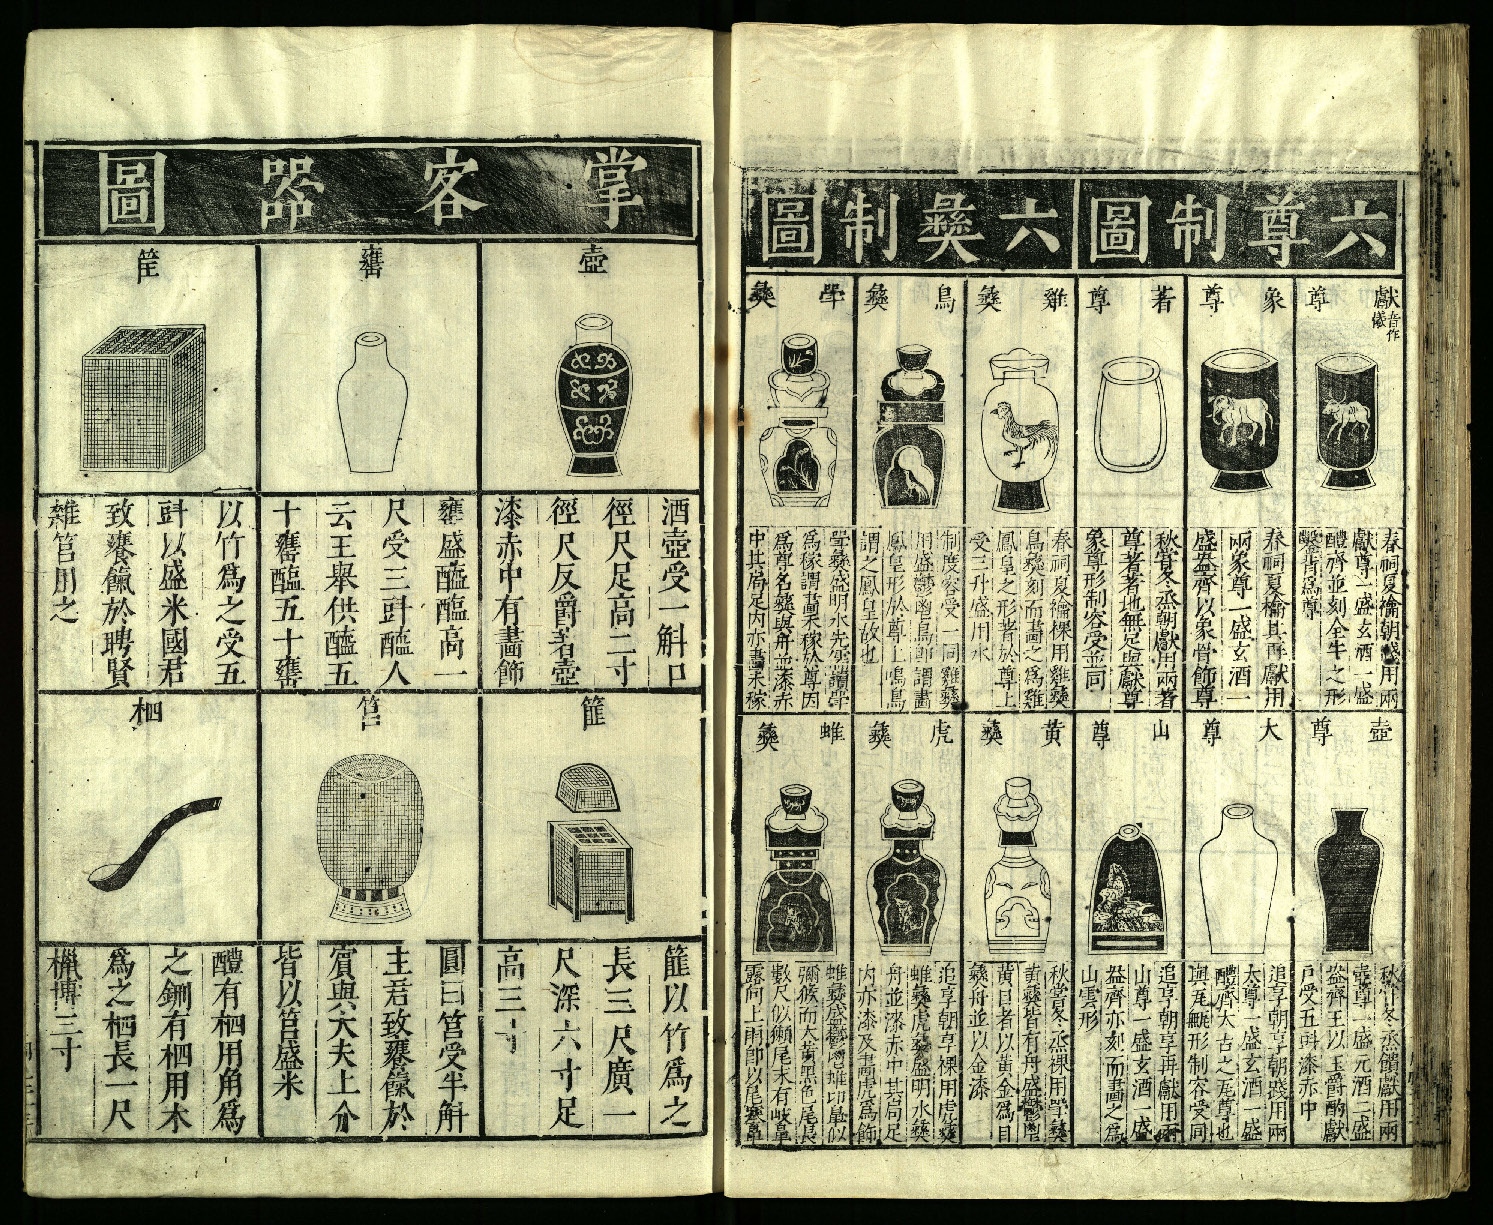 六尊制圖
獻尊
音作儀
春祠夏禴朝踐用兩
獻尊一盛玄酒一盛
醴齊並刻全牛之形
鑿背爲尊
象尊
春祠夏禴其再獻用
兩象尊一盛玄酒一
盛盎齊以象骨飾尊
著尊
秋嘗冬烝朝獻用兩著
尊著著地無足與獻尊
象尊形制容受並同
壺尊
秋嘗冬烝饋獻用兩
壺尊一盛元酒一盛
盎齊王以玉爵酌獻
尸受五㪷漆赤中
大尊
追享朝享朝踐用兩
大尊一盛玄酒一盛
醴齊大古之瓦尊也
與瓦甒形制容受同
山尊
追享朝享再獻用兩
山尊一盛玄酒一盛
盎齊亦刻而畫之爲
山雲形
六彝制圖
雞彝
春祠夏禴祼用雞彝
鳥彝刻而畫之爲雞
鳳皇之形著於尊上
受三升盛用水
鳥彝
制度容受一同雞彝
用盛鬱鬯鳥即謂畫
鳳皇形於尊上鳴鳥
謂之鳳皇故也
斝彝
斝彝盛明水先鄭讀斝
爲稼謂畫禾稼於尊因
爲尊名彝與舟並漆赤
中其局足內亦畫禾稼
黃彝
秋嘗冬烝祼用斝彝
黃彝皆有舟盛鬱鬯
黃目者以黃金爲目
彝舟並以金漆
虎彝
追享朝享祼用虎彝
蜼彝虎彝盛明水彝
舟並漆赤中其局足
內亦漆及畫虎爲飾
蜼彝
蜼彝盛鬱鬯蜼卬鼻似
獼猴而大黃黑色尾長
數尺似獺尾末有岐鼻
露向上雨卽以尾塞鼻
掌客器圖
壺
酒壺受一斛口
徑尺足高二寸
徑尺反爵著壺
漆赤中有畫飾
罋
罋盛醯醢高一
尺受三㪷醢人
云王舉供醢五
十罋醢五十罋
筐
以竹爲之受五
㪷以盛米國君
致饔餼於聘賢
雜筥用之
篚
篚以竹爲之
長三尺廣一
尺深六寸足
高三寸
筥
圓曰筥受半斛
主君致饔餼於
賓與大夫上介
皆以筥盛米
柶
醴有柶用角爲
之鉶有柶用木
爲之柶長一尺
櫼博三寸